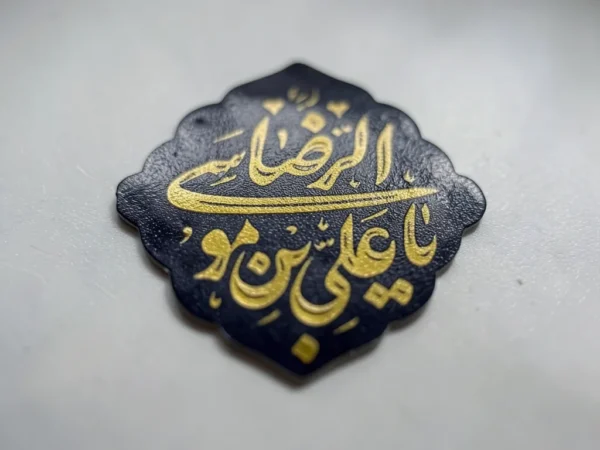 یا عَلیِّ بْن موسَی الرِّضا